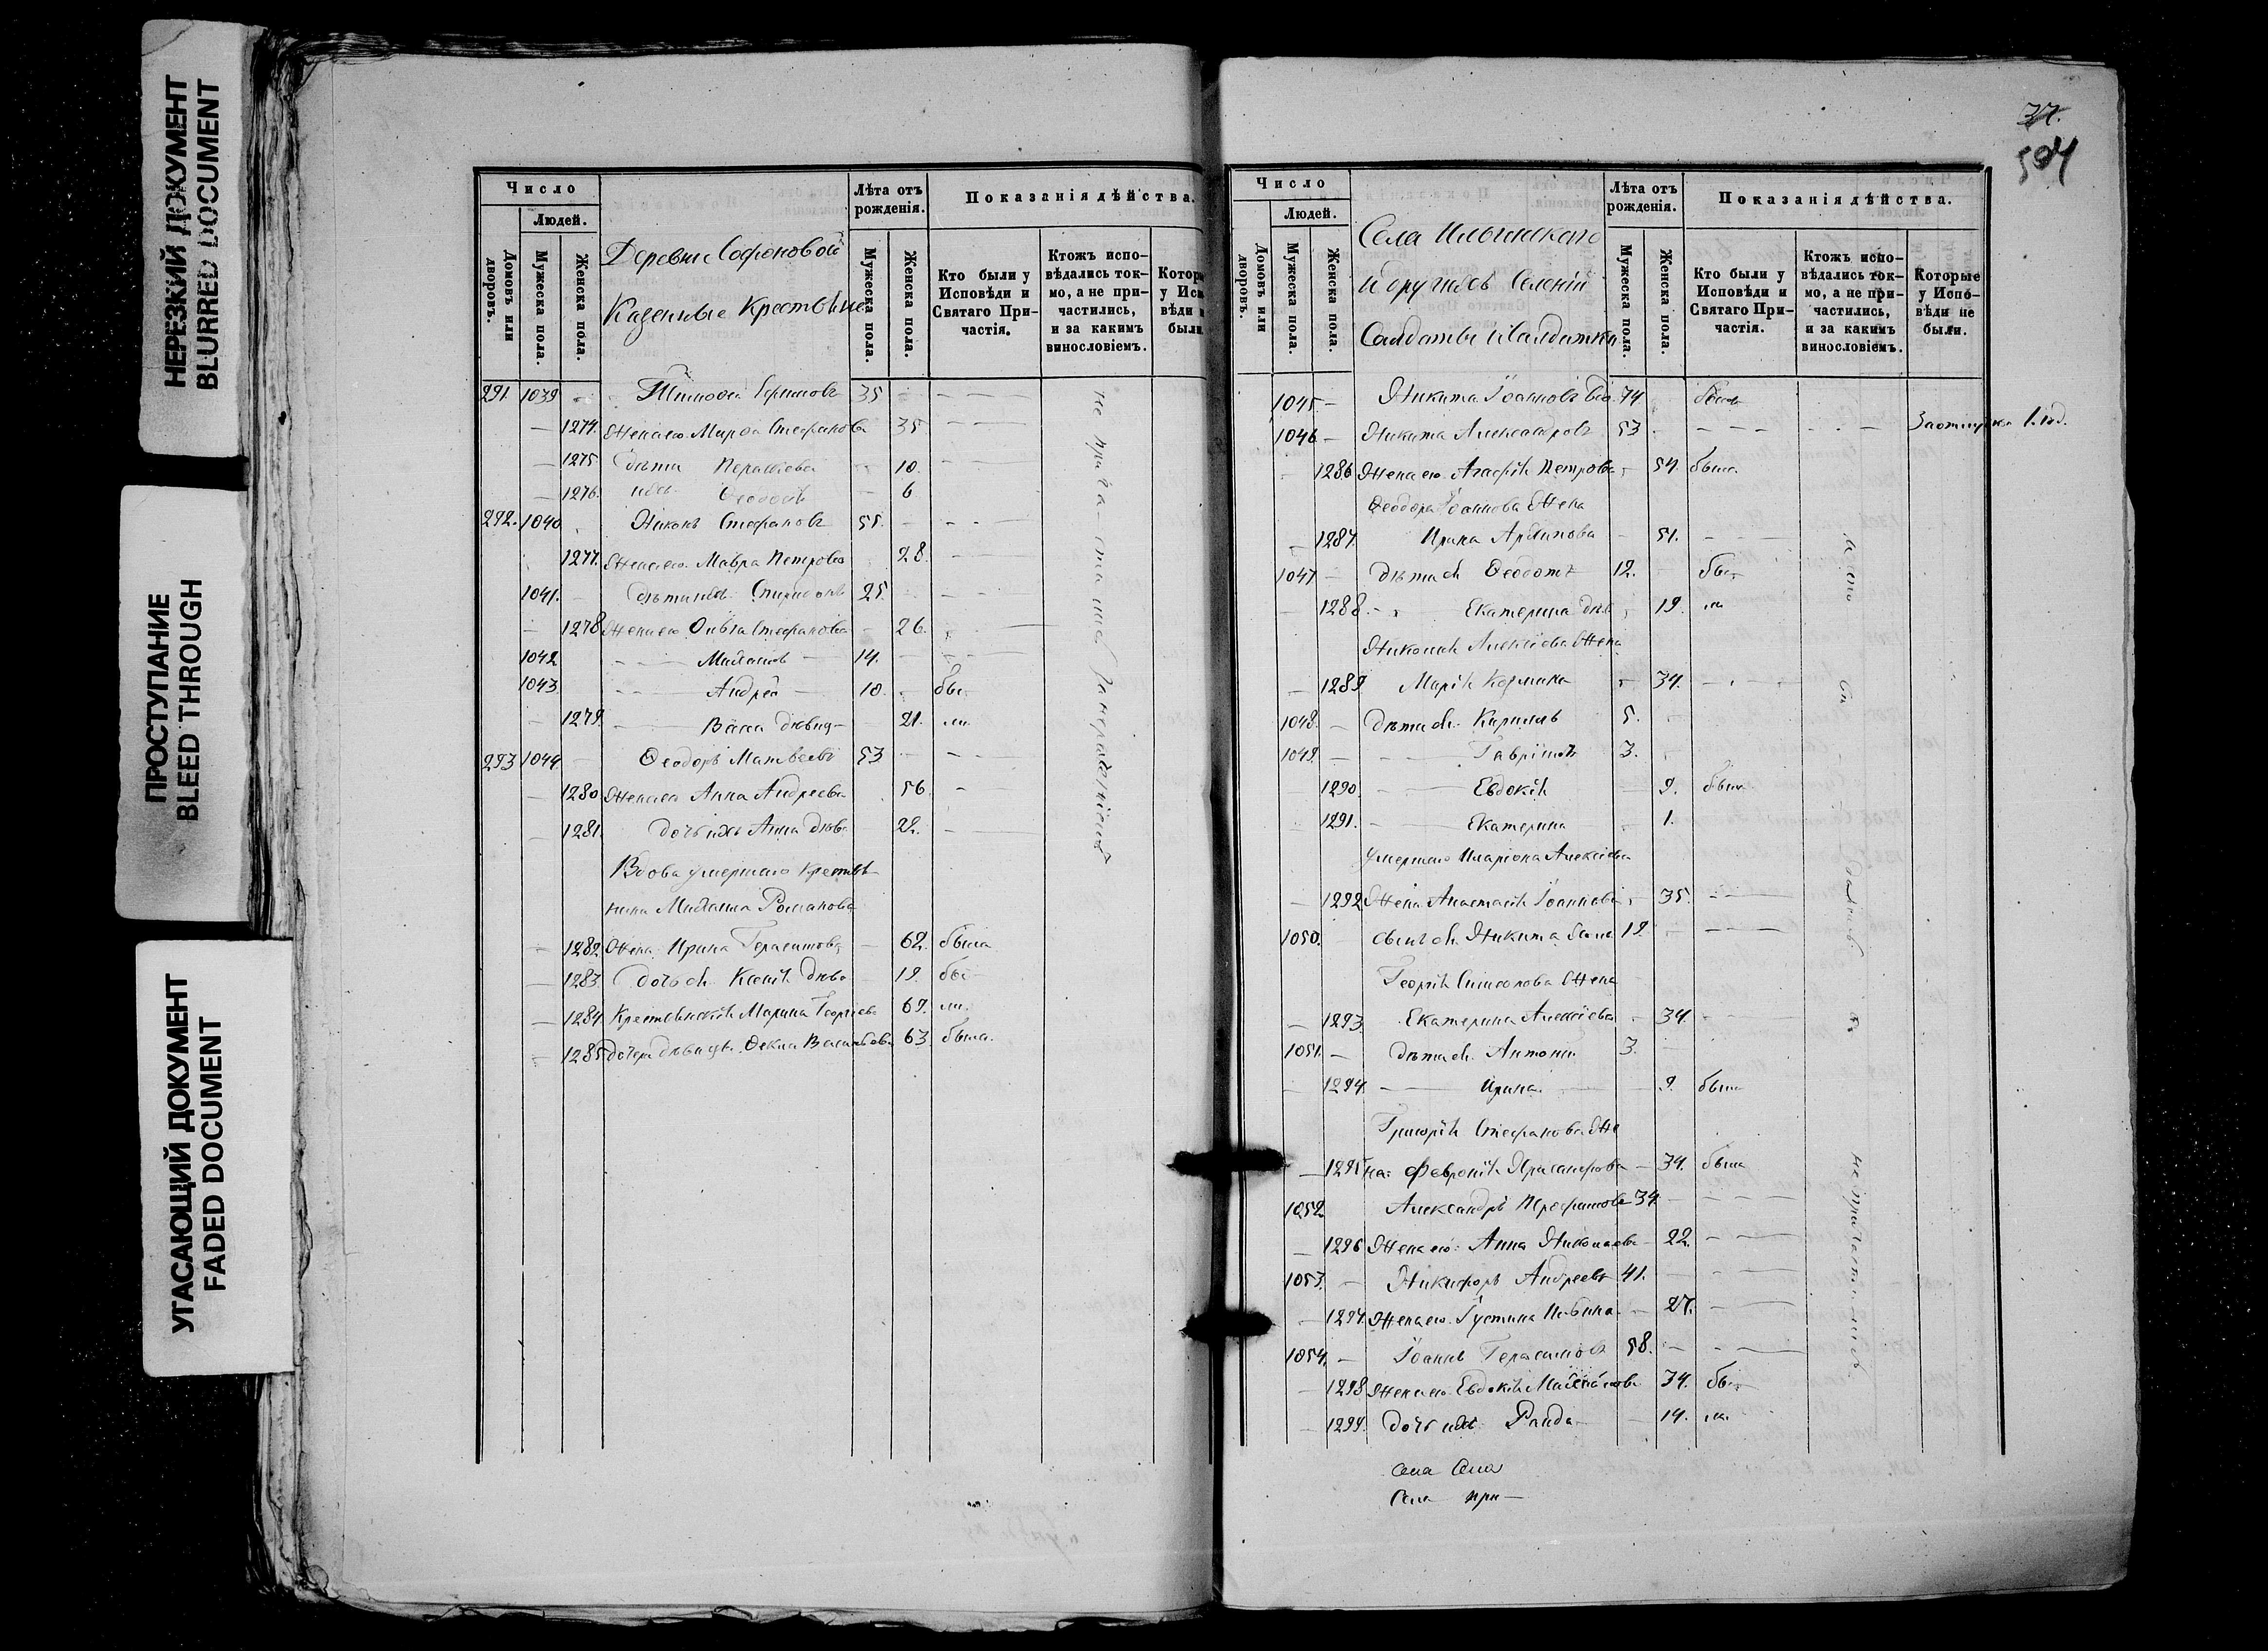 НЕРЕЗКИЙ ДОКУМЕНТ
BLURRED DOCUMENT
ПРОСТУПАНИЕ
BLEED THROUGH
УГАСАЮЩИЙ ДОКУМЕНТ
FADED DOCUMENT
Число
Людей.
Домовъ или дворовъ.
Мужеска пола.
Женска пола.
Деревни Софоновой
Казенные Крестьяне
Лѣта отъ рожденія.
Мужеска пола.
Женска пола.
Показанія дѣйства.
Кто были у Исповѣди и Святаго Причастія.
Ктожъ исповѣдались токмо, а не причастились, и за какимъ винословіемъ.
291. 1039 Ефимовъ 35
1274. Жена его Марѳа Стефанова 35
1275 Дѣти 10.
1276. ихъ Ѳеодосія 6
292. 1040 Никонъ Стефановъ 55.
1277. Жена его Мавра Петрова 28.
1041. Дѣти ихъ Спиридонъ 25.
1278 Жена его Ольга Стефанова 26.
1042 Михаилъ 14.
1043. Андрей 10. бы
1279. Васса дѣвица 21. ли
293 1044. Ѳеодоръ Матвеевъ 53
1280 Жена его Анна Андреева 56
1281. дочь ихъ Анна дѣв. 22.
Вдова умершаго крестья-
нина Михаила Романова
1282 Жена Ирина Герасимова 62. была
1283. Дочь ея Ксенія дѣв. 19. бы
1284. Крестьянскія Марина Георгіева 69. ли.
1285 дочери дѣвицы Ѳекла Васильева 63 была.
37.
594
Число
Людей.
Домовъ или дворовъ.
Мужеска пола.
Женска пола.
Села Ильинскаго
и другихъ селеній
Солдаты и солдатки
Лѣта отъ рожденія.
Мужеска пола.
Женска пола.
Показанія дѣйства.
Кто были у Исповѣди и Святаго Причастія.
Ктожъ исповѣдались токмо, а не причастились, и за какимъ винословіемъ.
Которые у Исповѣди не были.
1045 Никита Іоанновъ вдо. 74 былъ
1046 Никита Александровъ 53 1. год.
1286 Жена его Агафія Петрова 54. была
Ѳеодора Іоаннова Жена
1287. Ирина Архипова 51.
1047 Дѣти ея Ѳеодотъ 12. бы
1288. Екатерина дѣв. 19. ли
Николая Алексіева Жена
1289 Марія Козмина 34.
1048. Дѣти ея Кириллъ 5.
1049. Гавріилъ 3.
1290. Евдокія 9. была
1291. Екатерина 1.
Умершаго Иларіона Алексіева
1292 Жена Анастасія Іоаннова 35.
1050. сынъ ея Никита 12.
Георгія Симеонова Жена
1293 Екатерина Алексіева 34.
1051. Дѣти ея Антоній 3.
1294. Ирина 9 была
Григорія Стефанова Же
1295 на: Февронія 34. была
1052 Александръ 34
1296 Жена его: Анна Николаева 22.
1053. Никифоръ Андреевъ 41.
1297. Жена его Іустина 27.
1054. Іоаннъ Герасимовъ 58.
1298 Жена его Евдокія 34. бы
1299. дочь ихъ 14. ли